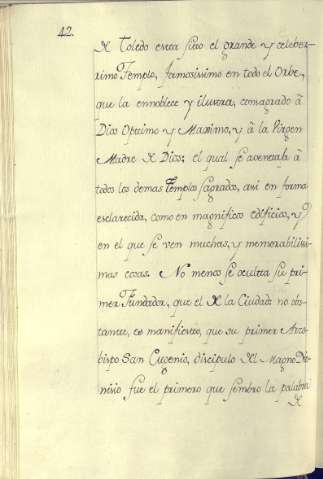 42.
de Toledo esta sito el grande y celeber-
rimo Templo, famosissimo en todo el Orbe,
que la ennoblece y ilustra, consagrado â
Dios Optimo y Maximo, y â la Virgen
Madre de Dios; el qual se aventaja â
todos los demas Templos sagrados, asi en forma
esclarecida, como en magnificos edificios, y
en el que se ven muchas, y memorabilisi-
mas cosas. No menos se oculta su pri-
mer Fundador, que el de la Ciudad: no obs-
tante, es manifiesto, que su primer Arzo-
bispo San Eugenio, discipulo del Magno Dio-
nisio fue el primero que sembro la palabra
de